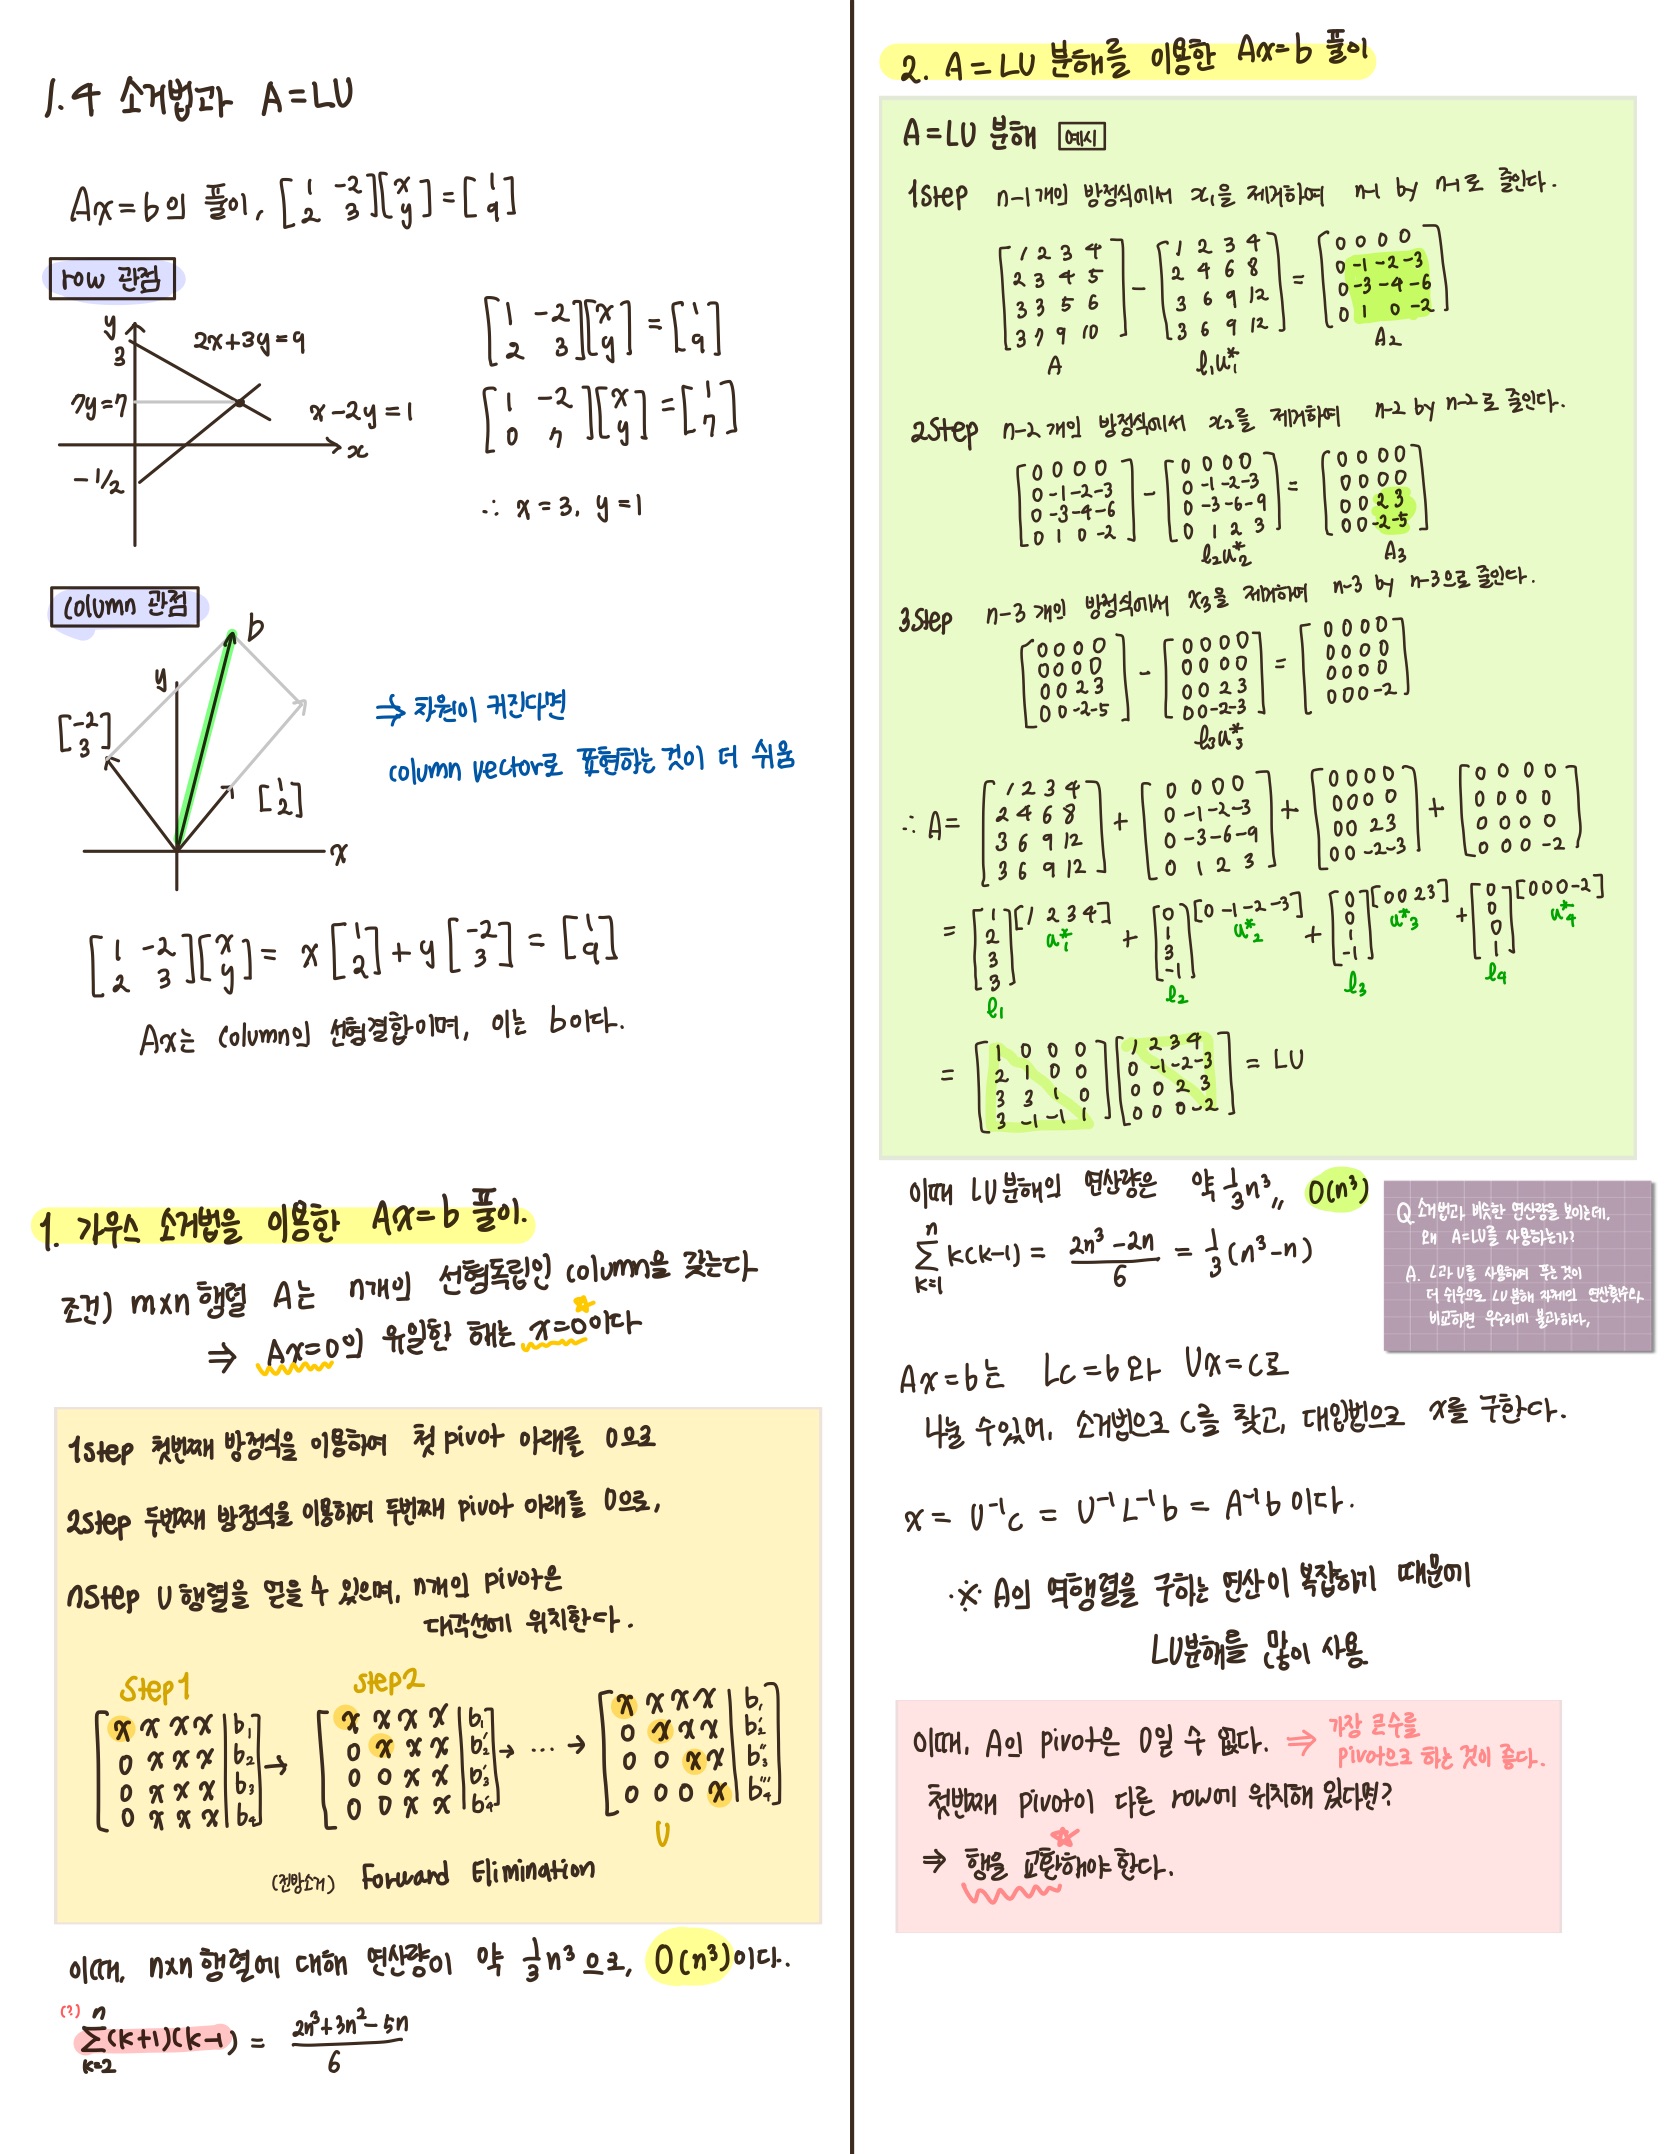 1.4 소거법과 A=LU
Ax=b의 풀이, [1 -2; 2 3][x; y]=[1; 9]
row 관점
y
3
2x+3y=9
7y=7
x-2y=1
x
-1/2
[1 -2; 2 3][x; y] = [1; 9]
[1 -2; 0 7][x; y] = [1; 7]
∴ x=3, y=1
column 관점
b
y
[-2; 3]
[1; 2]
x
⇒ 차원이 커진다면
column vector로 표현하는 것이 더 쉬움
[1 -2; 2 3][x; y] = x[1; 2] + y[-2; 3] = [1; 9]
Ax는 column의 선형결합이며, 이는 b이다.
1. 가우스 소거법을 이용한 Ax=b 풀이.
조건) m×n 행렬 A는 n개의 선형독립인 column을 갖는다
⇒ Ax=0의 유일한 해는 x=0이다
1step 첫번째 방정식을 이용하여 첫 pivot 아래를 0으로
2step 두번째 방정식을 이용하여 두번째 pivot 아래를 0으로,
nstep U 행렬을 얻을 수 있으며, n개의 pivot은
대각선에 위치한다.
Step1
step2
[x x x x | b1; 0 x x x | b2; 0 x x x | b3; 0 x x x | b4] → [x x x x | b1; 0 x x x | b2'; 0 0 x x | b3'; 0 0 x x | b4'] → ... → [x x x x | b1; 0 x x x | b2'; 0 0 x x | b3''; 0 0 0 x | b4''']
U
(전방소거) Forward Elimination
이때, n×n 행렬에 대해 연산량이 약 1/3 n³으로, O(n³)이다.
(?)
n
∑(k+1)(k-1) = (2n³+3n²-5n)/6
k=2
2. A=LU 분해를 이용한 Ax=b 풀이
A=LU 분해 예시
1step n-1개의 방정식에서 x₁을 제거하여 n-1 by n-1로 줄인다.
[1 2 3 4; 2 3 4 5; 3 3 5 6; 3 7 9 10] - [1 2 3 4; 2 4 6 8; 3 6 9 12; 3 6 9 12] = [0 0 0 0; 0 -1 -2 -3; 0 -3 -4 -6; 0 1 0 -2]
A
ℓ₁u₁*
A₂
2Step n-2개의 방정식에서 x₂를 제거하여 n-2 by n-2로 줄인다.
[0 0 0 0; 0 -1 -2 -3; 0 -3 -4 -6; 0 1 0 -2] - [0 0 0 0; 0 -1 -2 -3; 0 -3 -6 -9; 0 1 2 3] = [0 0 0 0; 0 0 0 0; 0 0 2 3; 0 0 -2 -5]
ℓ₂u₂*
A₃
3Step n-3개의 방정식에서 x₃을 제거하여 n-3 by n-3으로 줄인다.
[0 0 0 0; 0 0 0 0; 0 0 2 3; 0 0 -2 -5] - [0 0 0 0; 0 0 0 0; 0 0 2 3; 0 0 -2 -3] = [0 0 0 0; 0 0 0 0; 0 0 0 0; 0 0 0 -2]
ℓ₃u₃*
∴ A= [1 2 3 4; 2 4 6 8; 3 6 9 12; 3 6 9 12] + [0 0 0 0; 0 -1 -2 -3; 0 -3 -6 -9; 0 1 2 3] + [0 0 0 0; 0 0 0 0; 0 0 2 3; 0 0 -2 -3] + [0 0 0 0; 0 0 0 0; 0 0 0 0; 0 0 0 -2]
= [1; 2; 3; 3][1 2 3 4] + [0; 1; 3; -1][0 -1 -2 -3] + [0; 0; 1; -1][0 0 2 3] + [0; 0; 0; 1][0 0 0 -2]
u₁* u₂* u₃* u₄*
ℓ₁ ℓ₂ ℓ₃ ℓ₄
= [1 0 0 0; 2 1 0 0; 3 3 1 0; 3 -1 -1 1][1 2 3 4; 0 -1 -2 -3; 0 0 2 3; 0 0 0 -2] = LU
이때 LU분해의 연산량은 약 1/3 n³,, O(n³)
n
∑ k(k-1) = (2n³-2n)/6 = 1/3 (n³-n)
k=1
Q 소거법과 비슷한 연산량을 보이는데,
왜 A=LU를 사용하는가?
A. L과 U를 사용하여 푸는 것이
더 쉬우므로 LU분해 자체의 연산횟수와
비교하면 우수리에 불과하다,
Ax=b는 Lc=b와 Ux=c로
나눌 수 있어, 소거법으로 c를 찾고, 대입법으로 x를 구한다.
x = U⁻¹c = U⁻¹L⁻¹b = A⁻¹b 이다.
※ A의 역행렬을 구하는 연산이 복잡하기 때문에
LU분해를 많이 사용
이때, A의 pivot은 0일 수 없다. ⇒ 가장 큰수를
pivot으로 하는 것이 좋다.
첫번째 pivot이 다른 row에 위치해 있다면?
⇒ 행을 교환해야 한다.